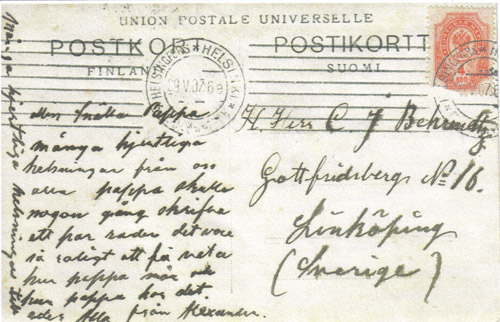 UNION POSTALE UNIVERSELLE
POSTKORT POSTIKORTTI
FINLAND SUOMI
HELSINGFORS HELSINKI
9.V.07. 6e
den snälla Pappa
många hjertliga
helsningar från oss
alla pappa skulle
nogon gång skrifva
ett par rader det vore
så roligt att få veta
hur pappa mår och
hur pappa har det
från Alexander.
Många hjertliga helsningar till
eder Alla
H. Herr C. J. Behrendtz
Gottfridsberg No 16.
Linköping
(Sverige)